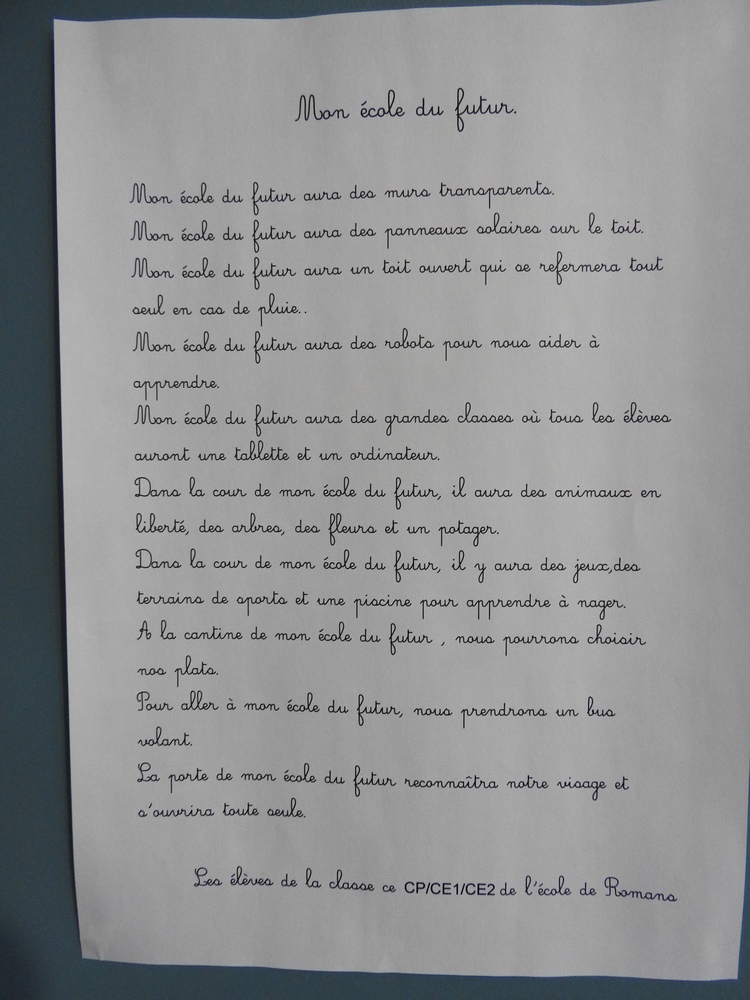 Mon école du futur.
Mon école du futur aura des murs transparents.
Mon école du futur aura des panneaux solaires sur le toit.
Mon école du futur aura un toit ouvert qui se refermera tout
seul en cas de pluie..
Mon école du futur aura des robots pour nous aider à
apprendre.
Mon école du futur aura des grandes classes où tous les élèves
auront une tablette et un ordinateur.
Dans la cour de mon école du futur, il aura des animaux en
liberté, des arbres, des fleurs et un potager.
Dans la cour de mon école du futur, il y aura des jeux,des
terrains de sports et une piscine pour apprendre à nager.
A la cantine de mon école du futur , nous pourrons choisir
nos plats.
Pour aller à mon école du futur, nous prendrons un bus
volant.
La porte de mon école du futur reconnaîtra notre visage et
s'ouvrira toute seule.
Les élèves de la classe ce CP/CE1/CE2 de l'école de Romans